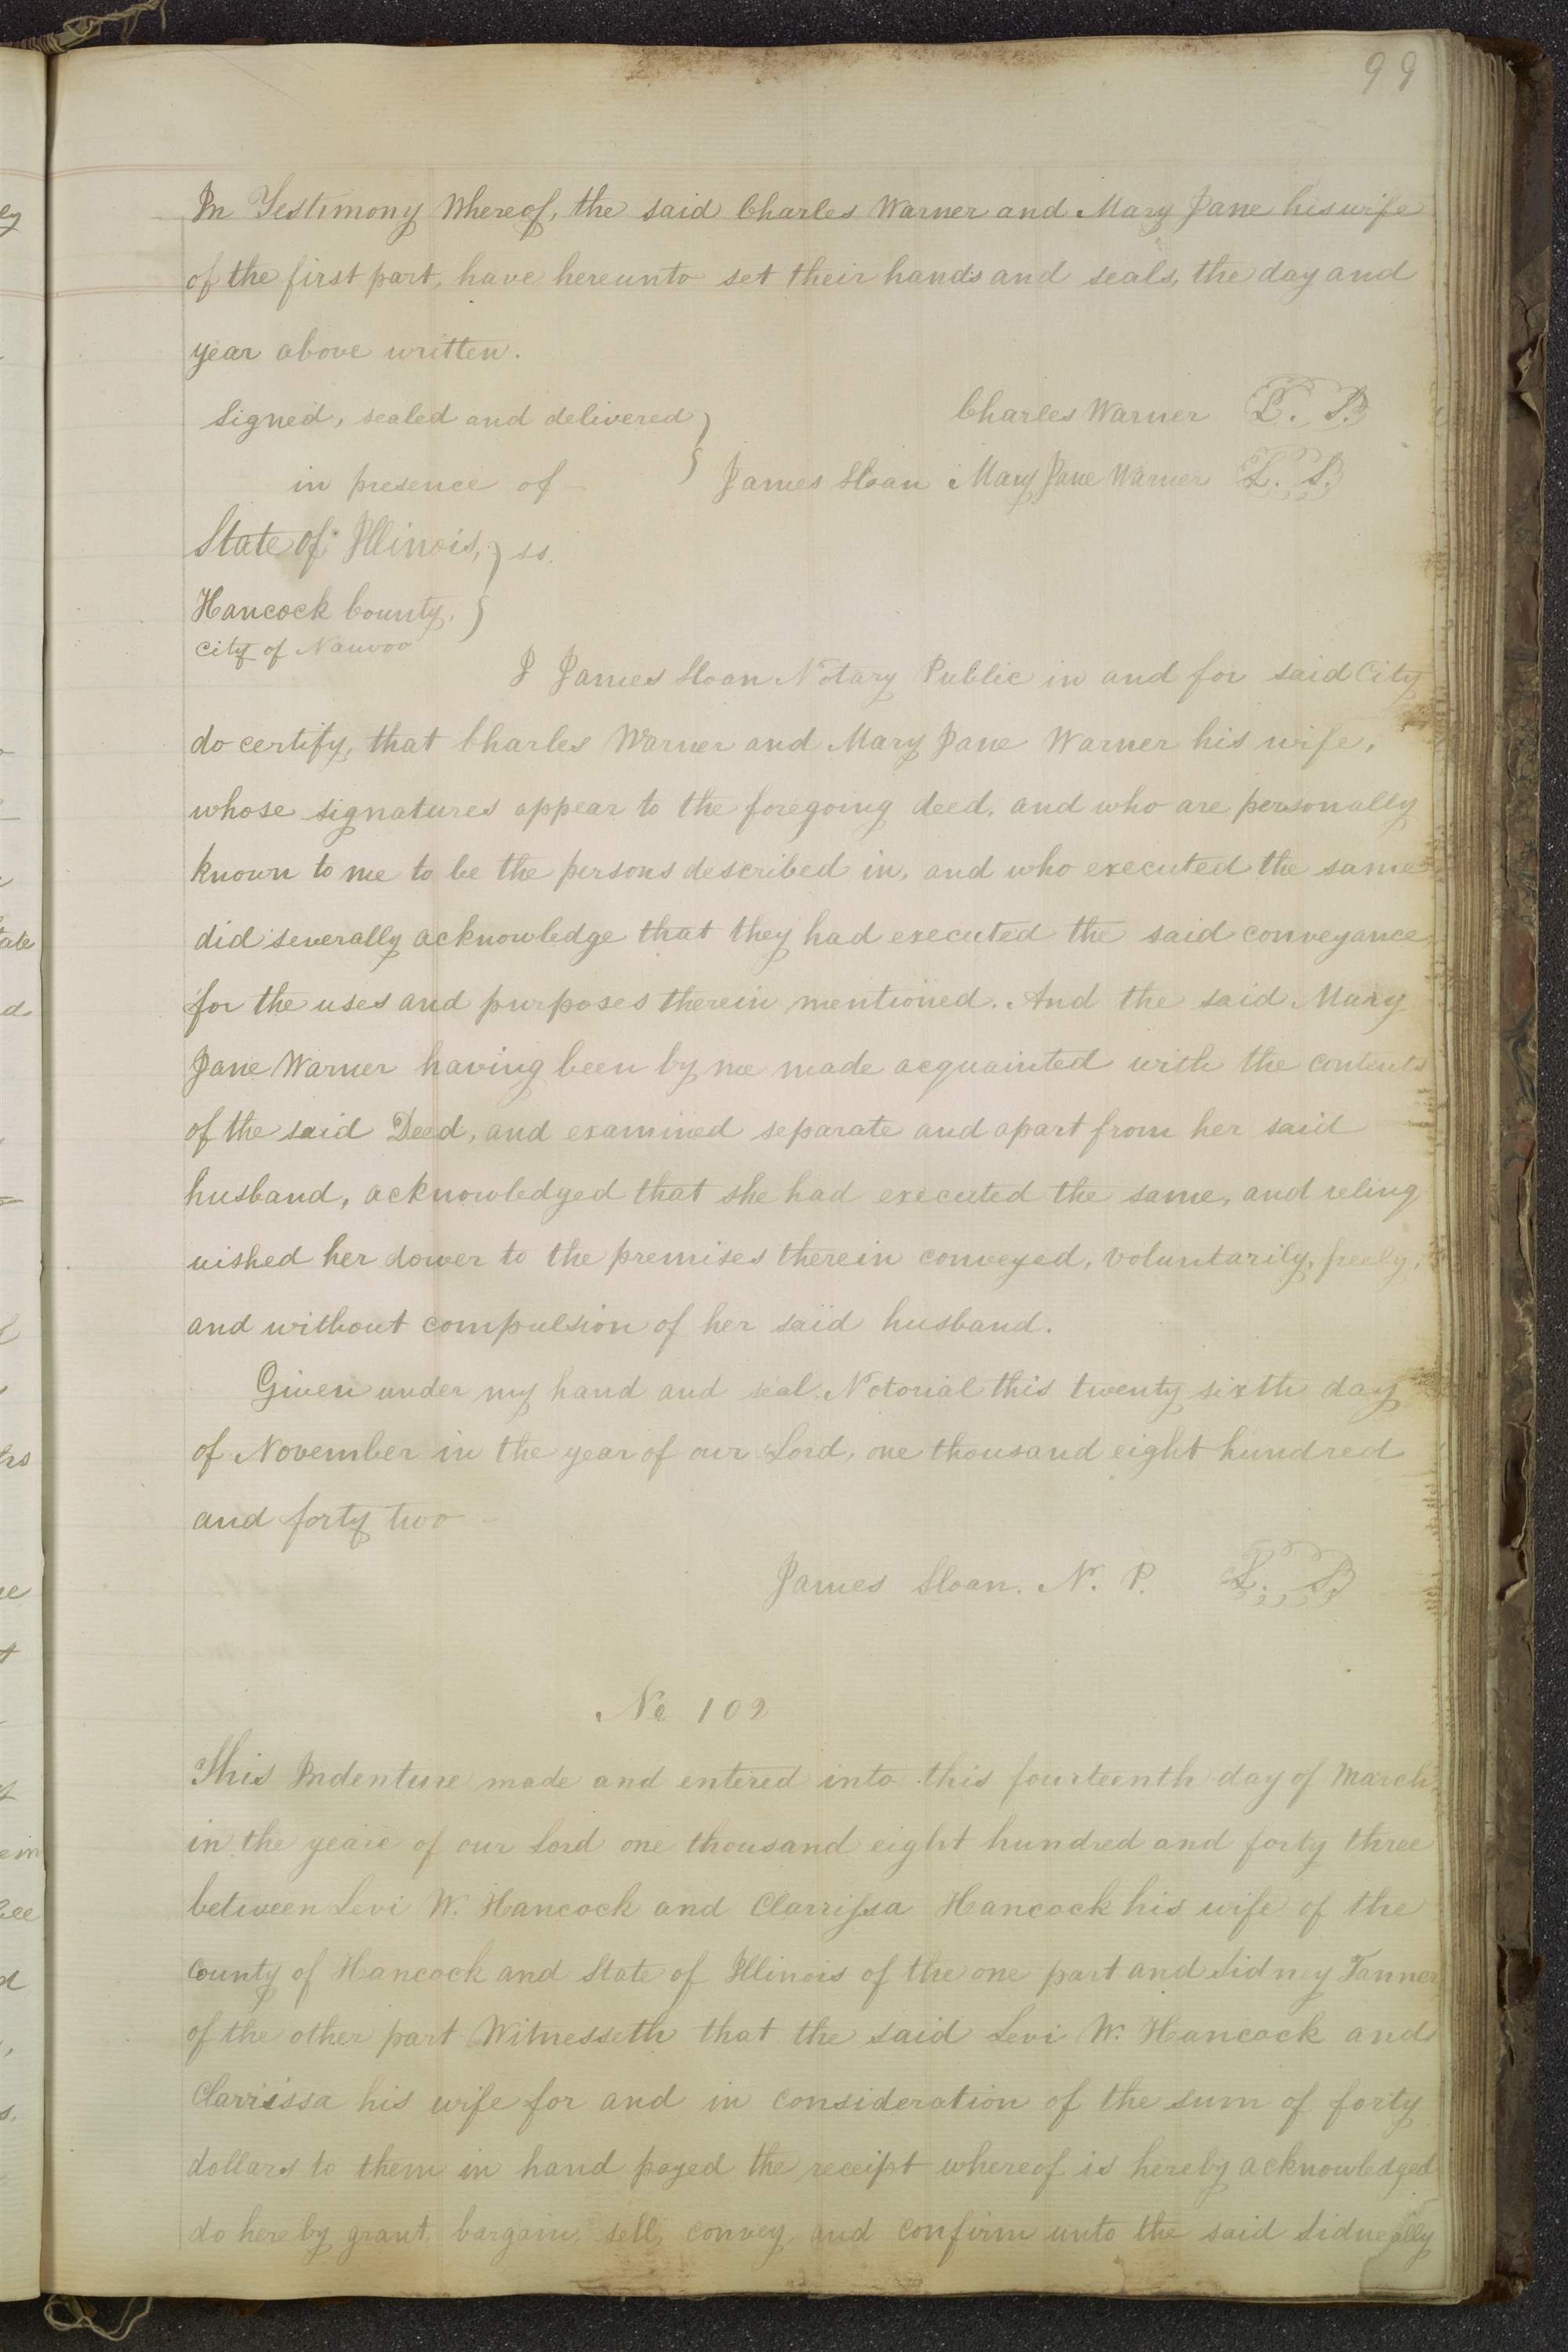 99
In Testimony Whereof, the said Charles Warner and Mary Jane his wife
of the first part, have hereunto set their hands and seals, the day and
year above written.
Signed, sealed and delivered } Charles Warner L. S.
in presence of } James Sloan Mary Jane Warner L. S.
State of Illinois, } ss.
Hancock County. }
City of Nauvoo
I James Sloan Notary Public in and for said City
do certify, that Charles Warner and Mary Jane Warner his wife,
whose signatures appear to the foregoing deed, and who are personally
known to me to be the persons described in, and who executed the same
did severally acknowledge that they had executed the said conveyance
for the uses and purposes therein mentioned. And the said Mary
Jane Warner having been by me made acquainted with the contents
of the said Deed, and examined separate and apart from her said
husband, acknowledged that she had executed the same, and relinq
uished her dower to the premises therein conveyed, voluntarily, freely,
and without compulsion of her said husband.
Given under my hand and seal Notorial this twenty sixth day
of November in the year of our Lord, one thousand eight hundred
and forty two
James Sloan. N. P. L. S.
No 102
This Indenture made and entered into this fourteenth day of March
in the yeare of our Lord one thousand eight hundred and forty three
between Levi W. Hancock and Clarrissa Hancock his wife of the
County of Hancock and State of Illinois of the one part and Sidney Tanner
of the other part Witnesseth that the said Levi W. Hancock and
Clarrissa his wife for and in consideration of the sum of forty
dollars to them in hand payed the receipt whereof is hereby acknowledged
do hereby grant, bargain, sell, convey, and confirm unto the said